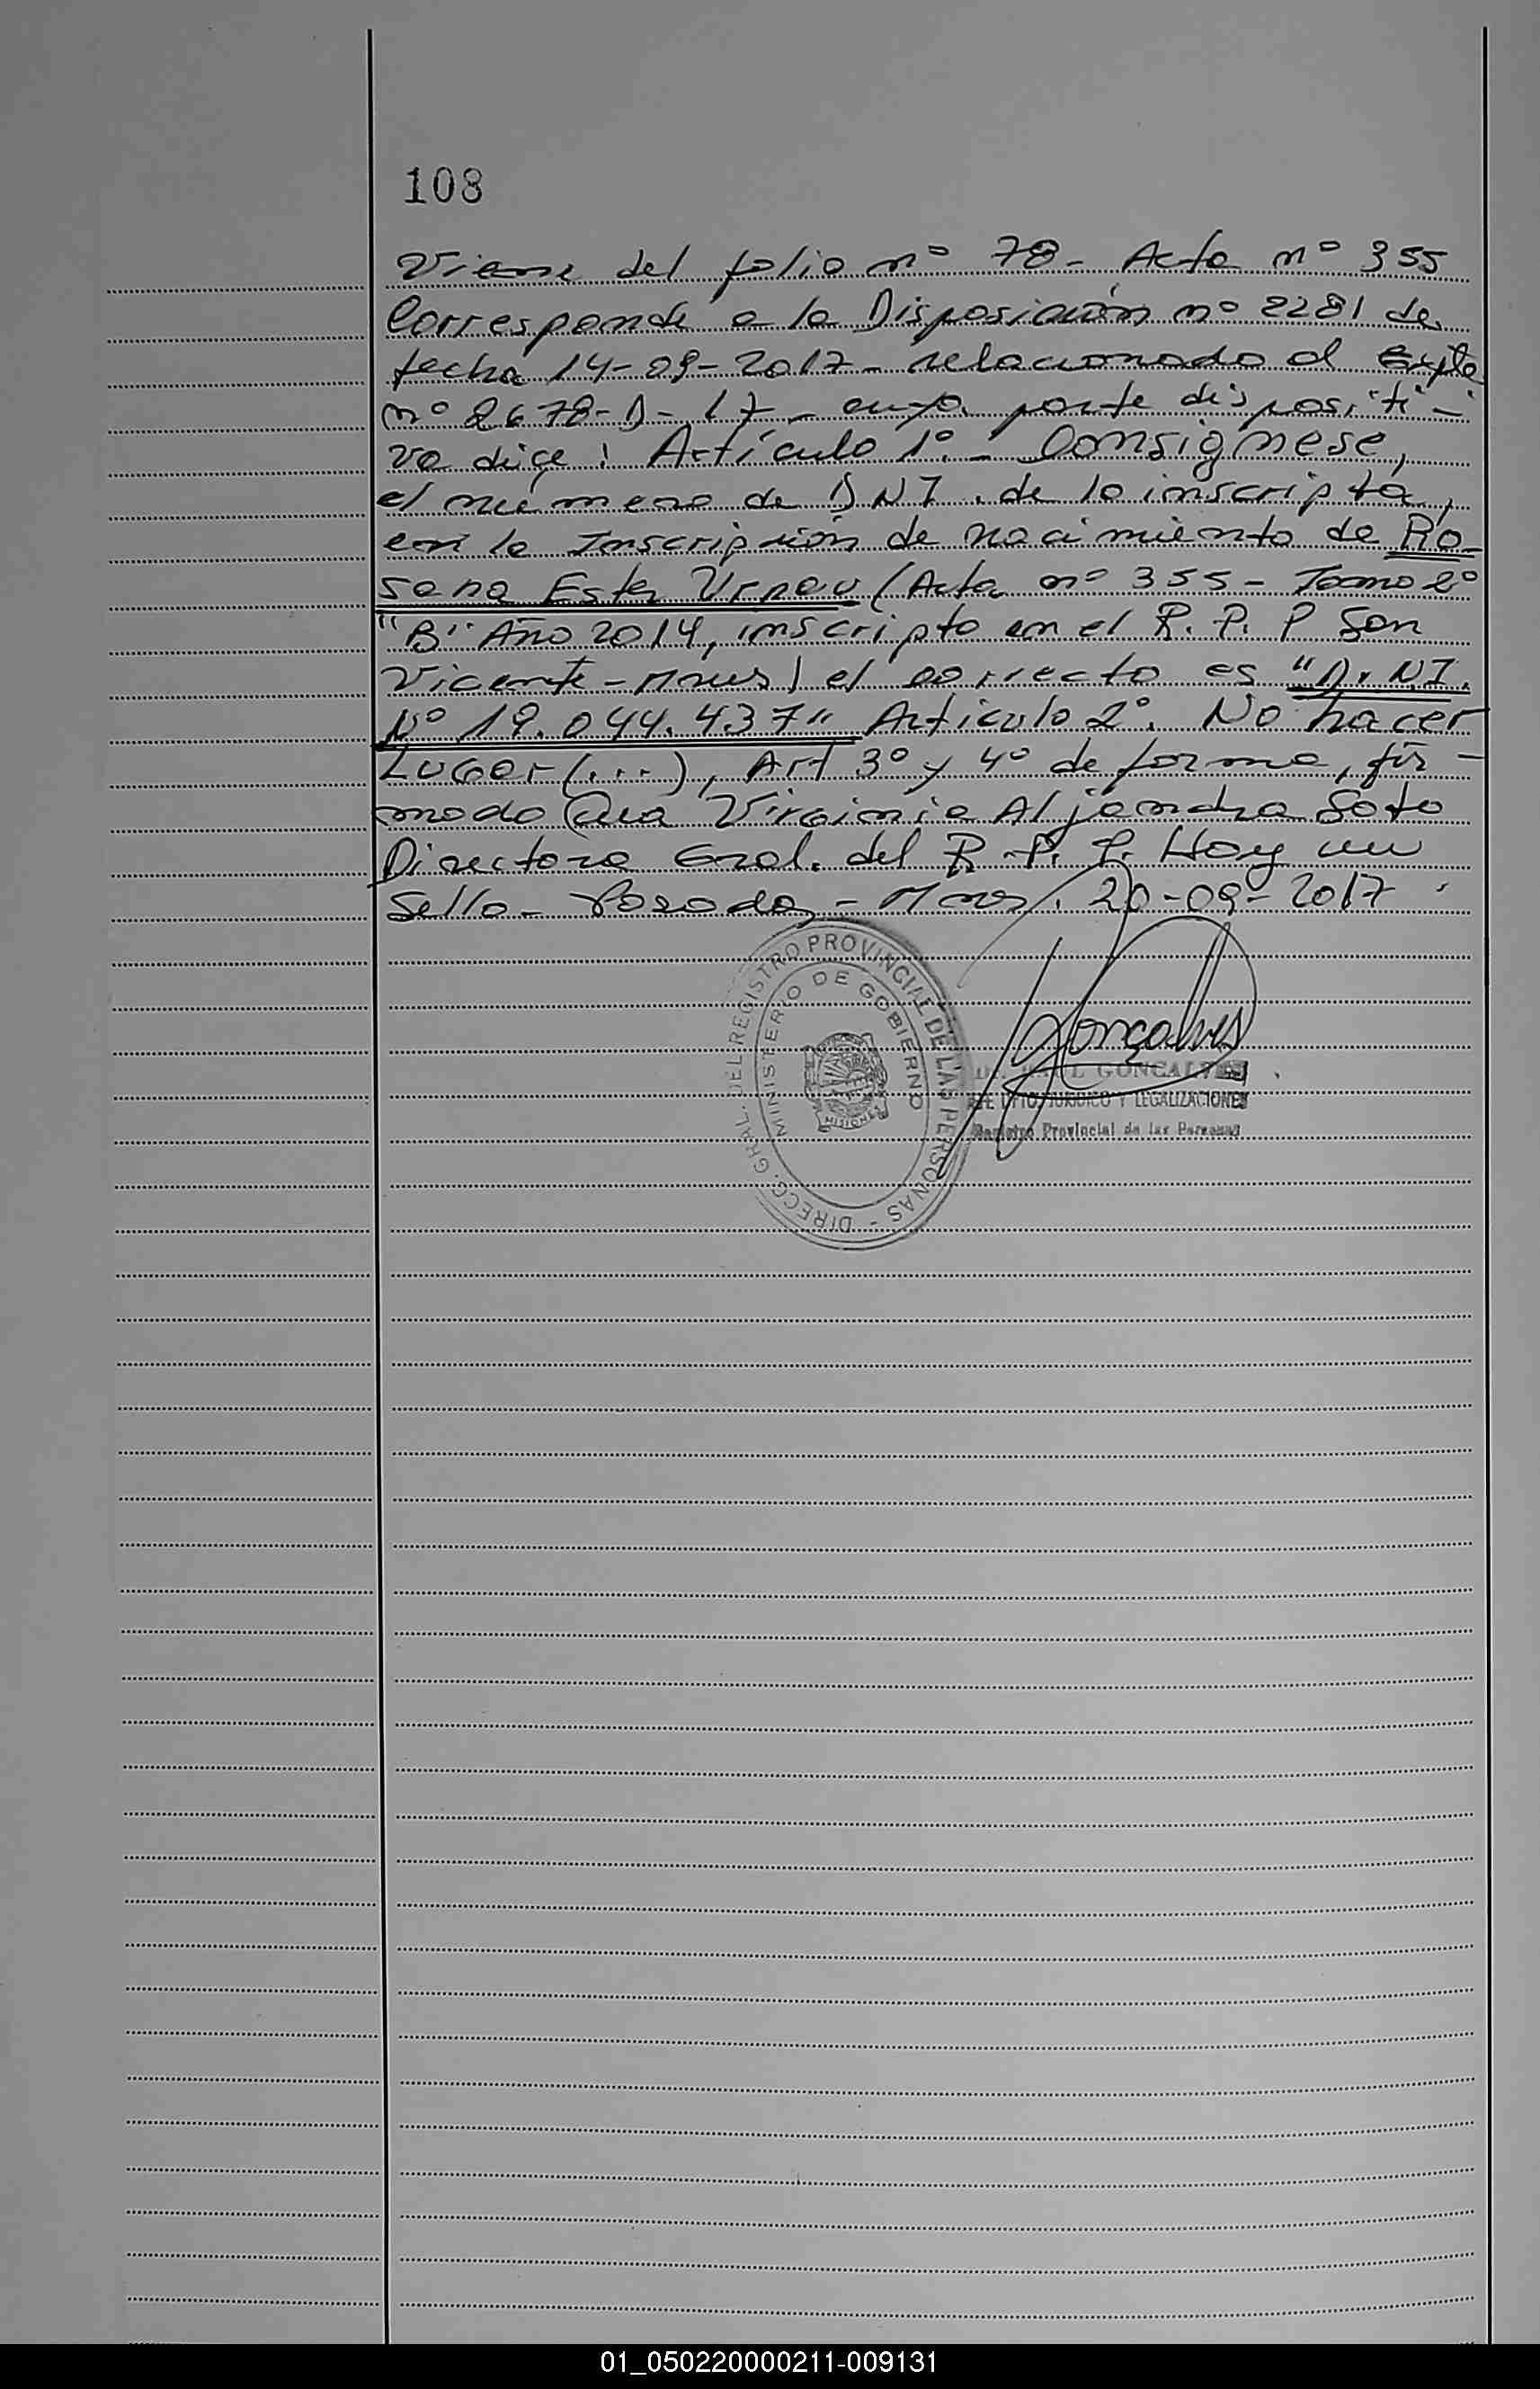 108
Viene del folio nº 78 - Acta nº 355
Corresponde a la Disposición nº 2281 de
fecha 14-09-2017 - relacionado al Expte
nº 2678-D-17 - cuya parte dispositi-
va dice: Artículo 1º.- Consignese,
el número de DNI. de la inscripta,
en la Inscripción de nacimiento de Ro-
sana Ester (Acta nº 355 - Tomo 2º
"B" Año 2014, inscripto en el R. P. P San
Vicente - Mnes) el correcto es "D. NI.
Nº 19.044.437" Articulo 2º. No hacer
Lugar (...), Art 3º y 4º de forma, fir-
mado Dra Virginia Aljandra Soto
Directora Gral. del R. P. P. Hay un
Sello - Posadas - Mnes. 20-09-2017
DIRECC. GRAL. DEL REGISTRO PROVINCIAL DE LAS PERSONAS -
MINISTERIO DE GOBIERNO
MISIONES
Gonçalves
GONCALVES
JURIDICO Y LEGALIZACIONES
Registro Provincial de las Personas
01_050220000211-009131